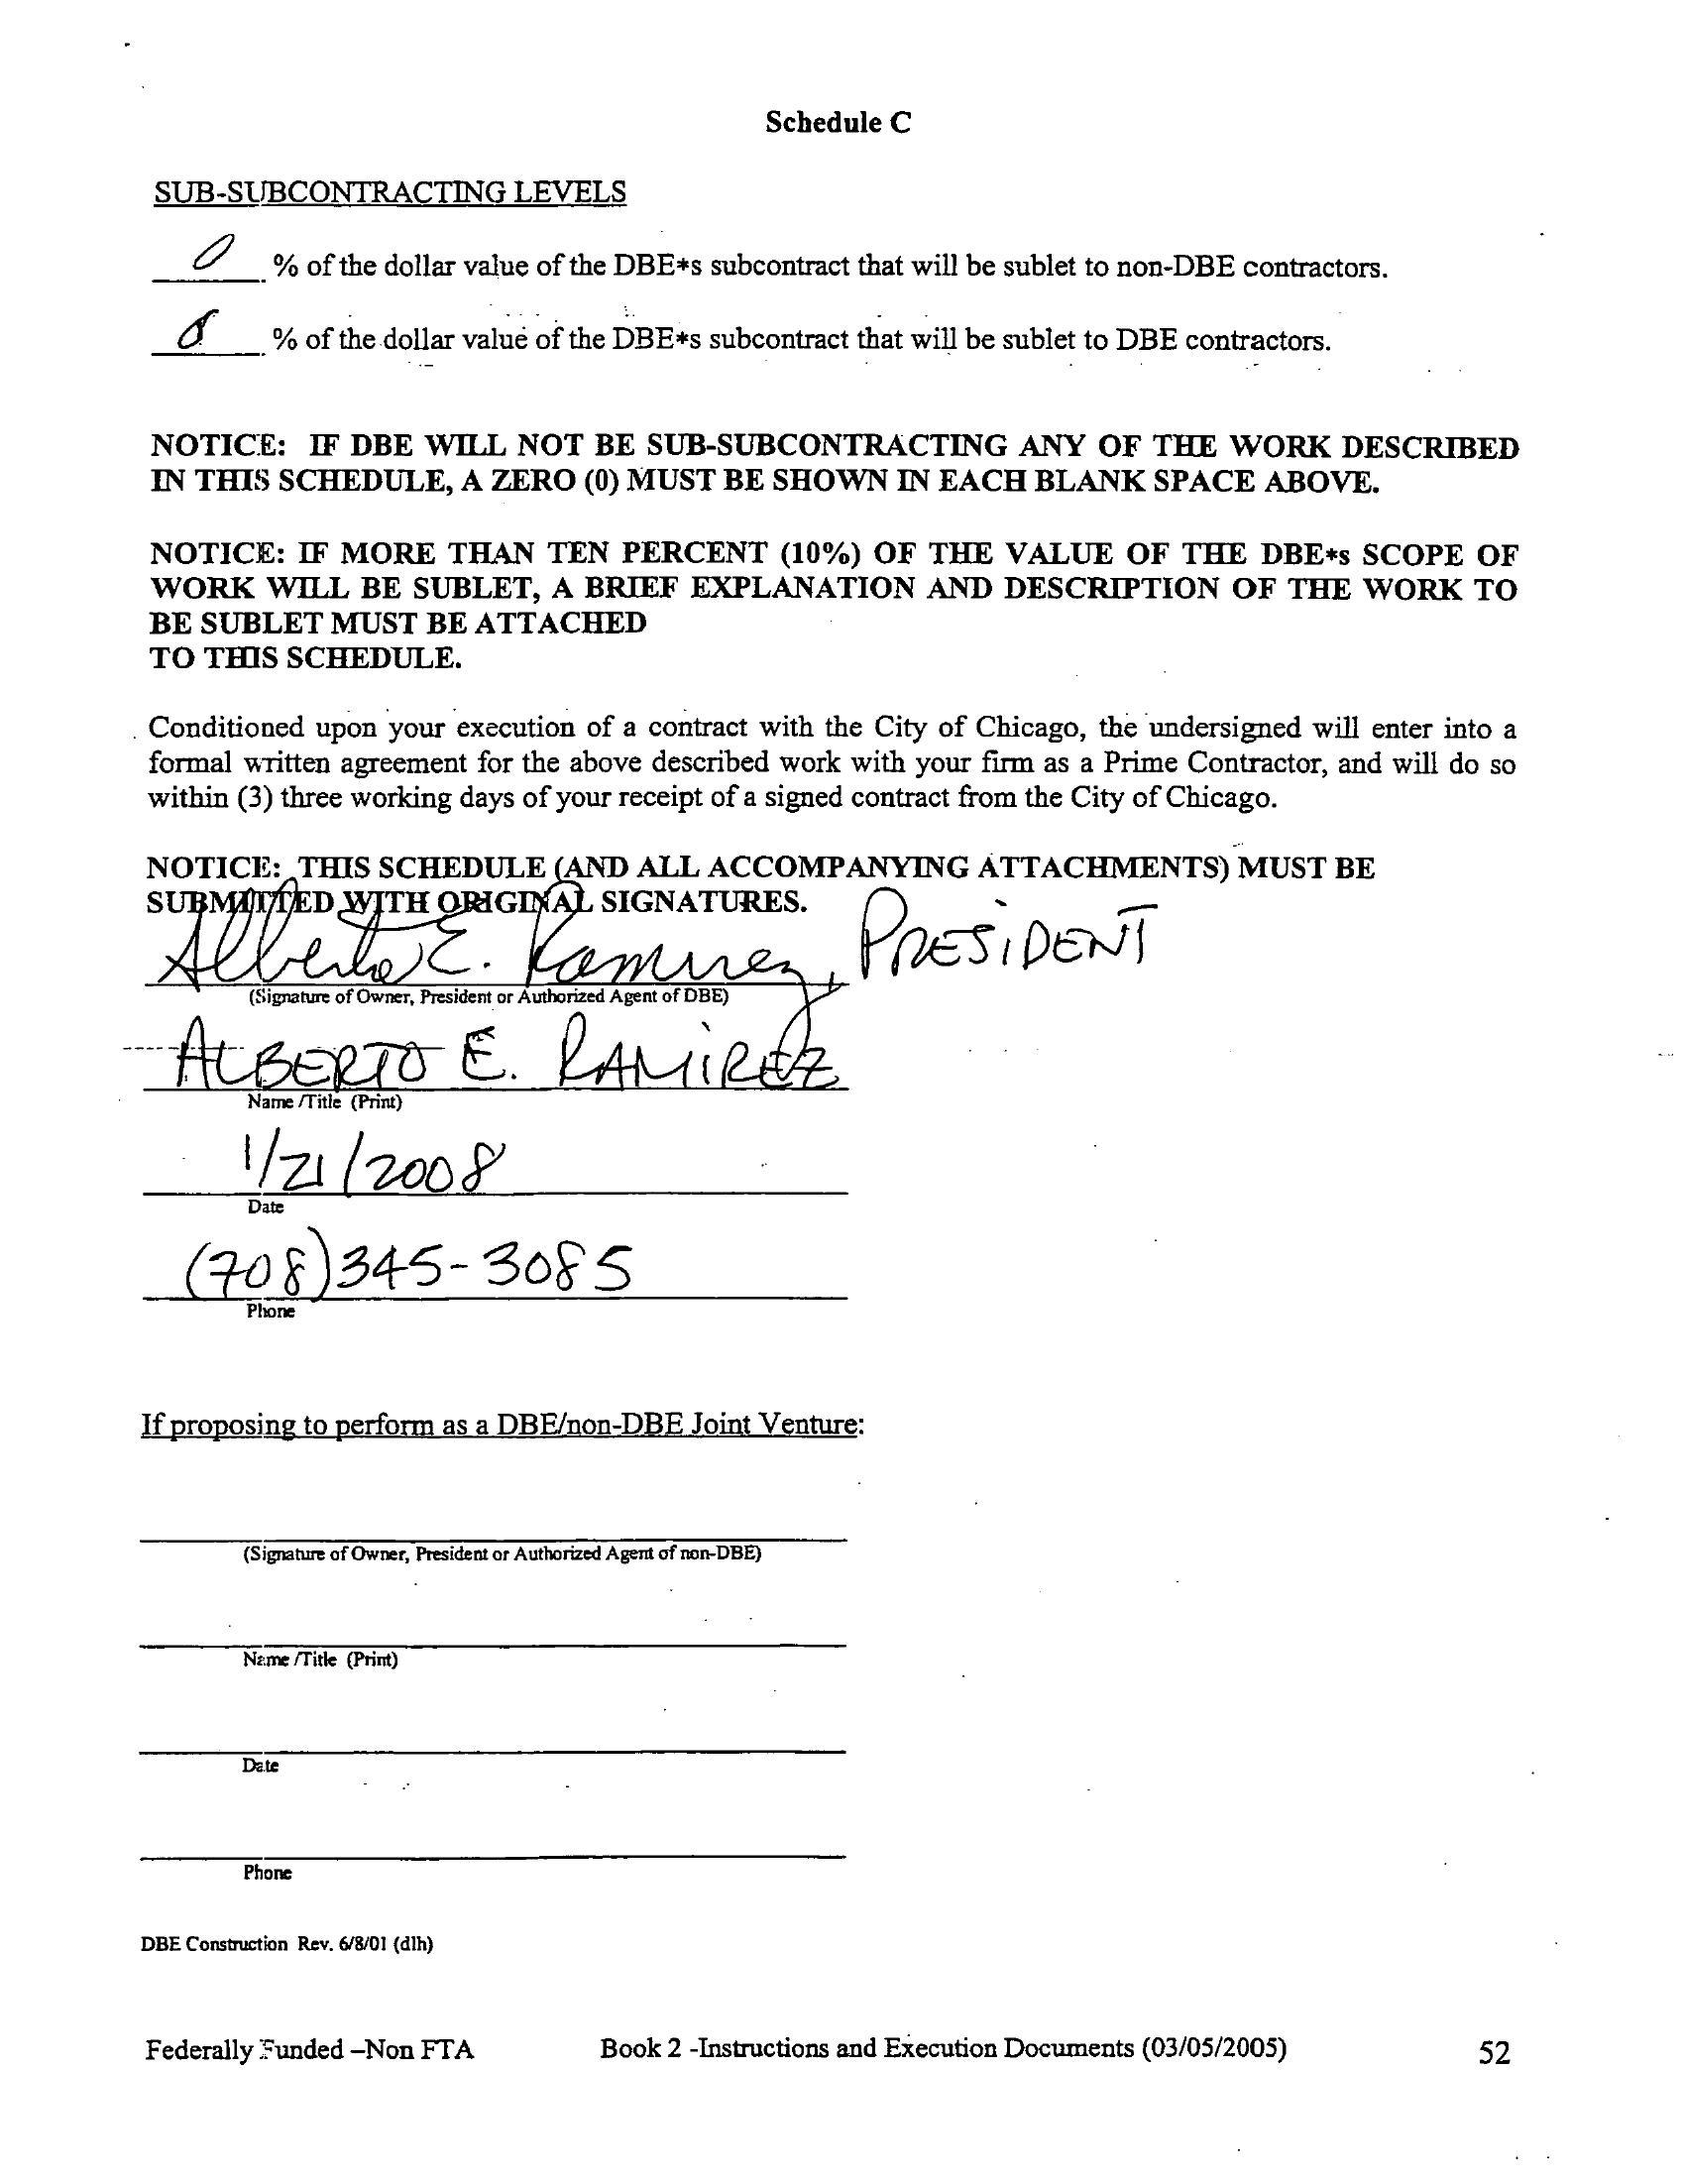 Schedule C
SUB-SUBCONTRACTING LEVELS
0 % of the dollar value of the DBE*s subcontract that will be sublet to non-DBE contractors.
0 % of the dollar value of the DBE*s subcontract that will be sublet to DBE contractors.
NOTICE: IF DBE WILL NOT BE SUB-SUBCONTRACTING ANY OF THE WORK DESCRIBED
IN THIS SCHEDULE, A ZERO (0) MUST BE SHOWN IN EACH BLANK SPACE ABOVE.
NOTICE: IF MORE THAN TEN PERCENT (10%) OF THE VALUE OF THE DBE*s SCOPE OF
WORK WILL BE SUBLET, A BRIEF EXPLANATION AND DESCRIPTION OF THE WORK TO
BE SUBLET MUST BE ATTACHED
TO THIS SCHEDULE.
Conditioned upon your execution of a contract with the City of Chicago, the undersigned will enter into a
formal written agreement for the above described work with your firm as a Prime Contractor, and will do so
within (3) three working days of your receipt of a signed contract from the City of Chicago.
NOTICE: THIS SCHEDULE (AND ALL ACCOMPANYING ATTACHMENTS) MUST BE
SUBMITTED WITH ORIGINAL SIGNATURES.
Alberto E. Ramirez, PRESIDENT
(Signature of Owner, President or Authorized Agent of DBE)
ALBERTO E. RAMIREZ
Name /Title (Print)
1/21/2008
Date
(708)345-3085
Phone
If proposing to perform as a DBE/non-DBE Joint Venture:
(Signature of Owner, President or Authorized Agent of non-DBE)
Name /Title (Print)
Date
Phone
DBE Construction Rev. 6/8/01 (dlh)
Federally Funded –Non FTA Book 2 -Instructions and Execution Documents (03/05/2005) 52